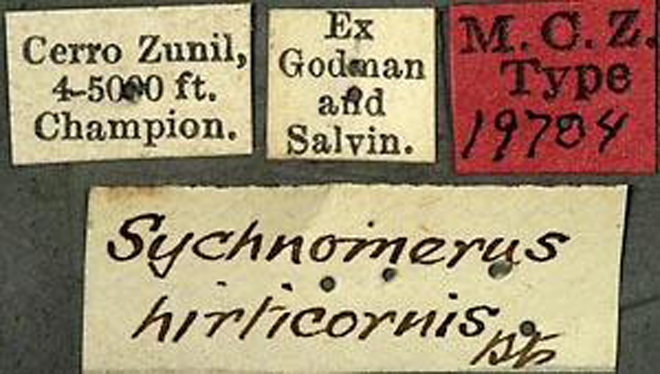 Cerro Zunil,
4-5000 ft.
Champion.
Ex
Godman
and
Salvin.
M. C. Z.
Type
19704
Sychnomerus
hirticornis